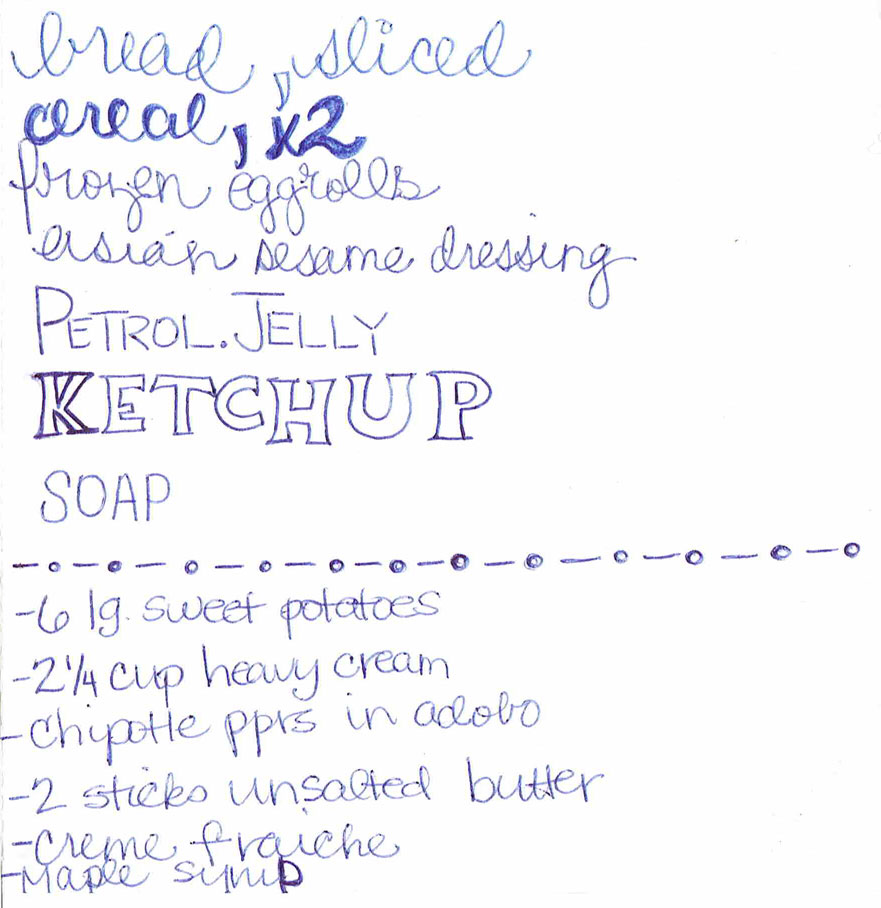 bread, sliced
cereal, x2
frozen eggrolls
asian sesame dressing
PETROL. JELLY
KETCHUP
SOAP
-6 lg. sweet potatoes
-2 1/4 cup heavy cream
-chipotle pprs in adobo
-2 sticks unsalted butter
-creme fraiche
-Maple syrup